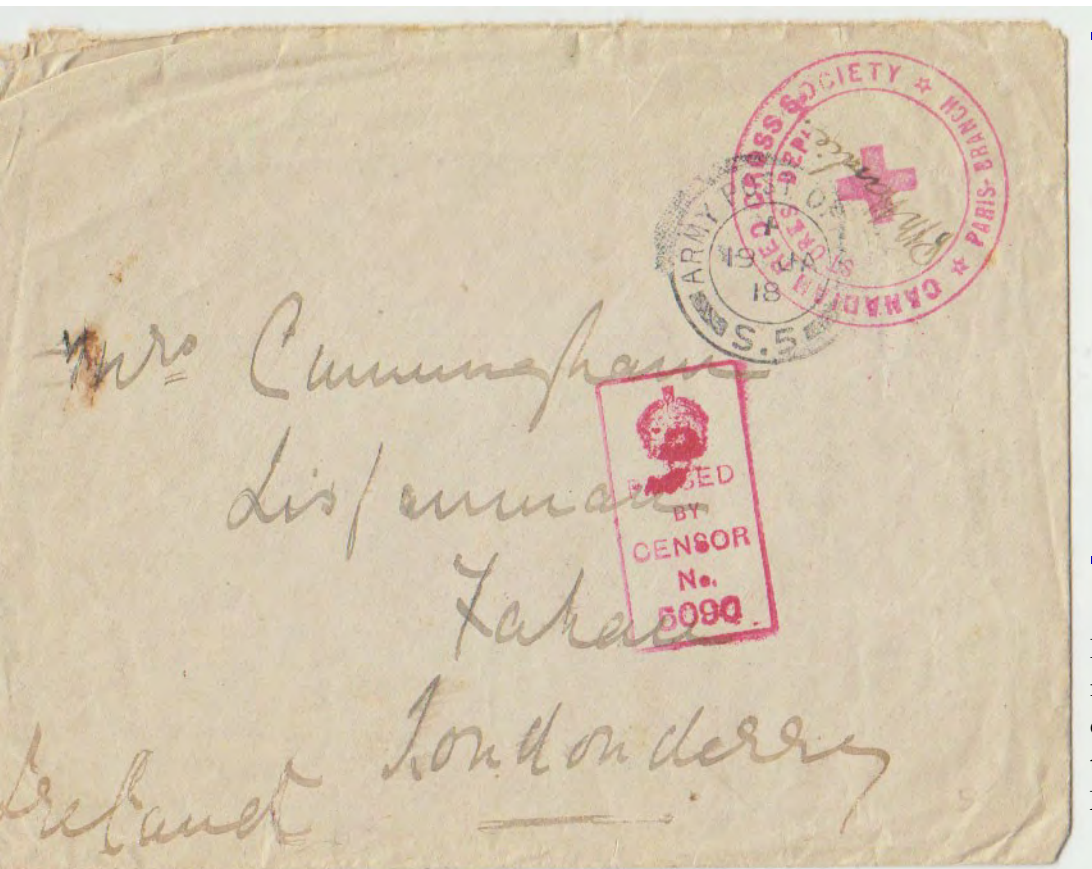 CANADIAN RED CROSS SOCIETY ☆ PARIS-BRANCH ☆
STORES DEPT.
ARMY POST OFFICE
19 JA
18
S.5
PASSED
BY
CENSOR
No.
5090
Mrs Cunningham
Lisfannan
Fahan
Londonderry
Ireland